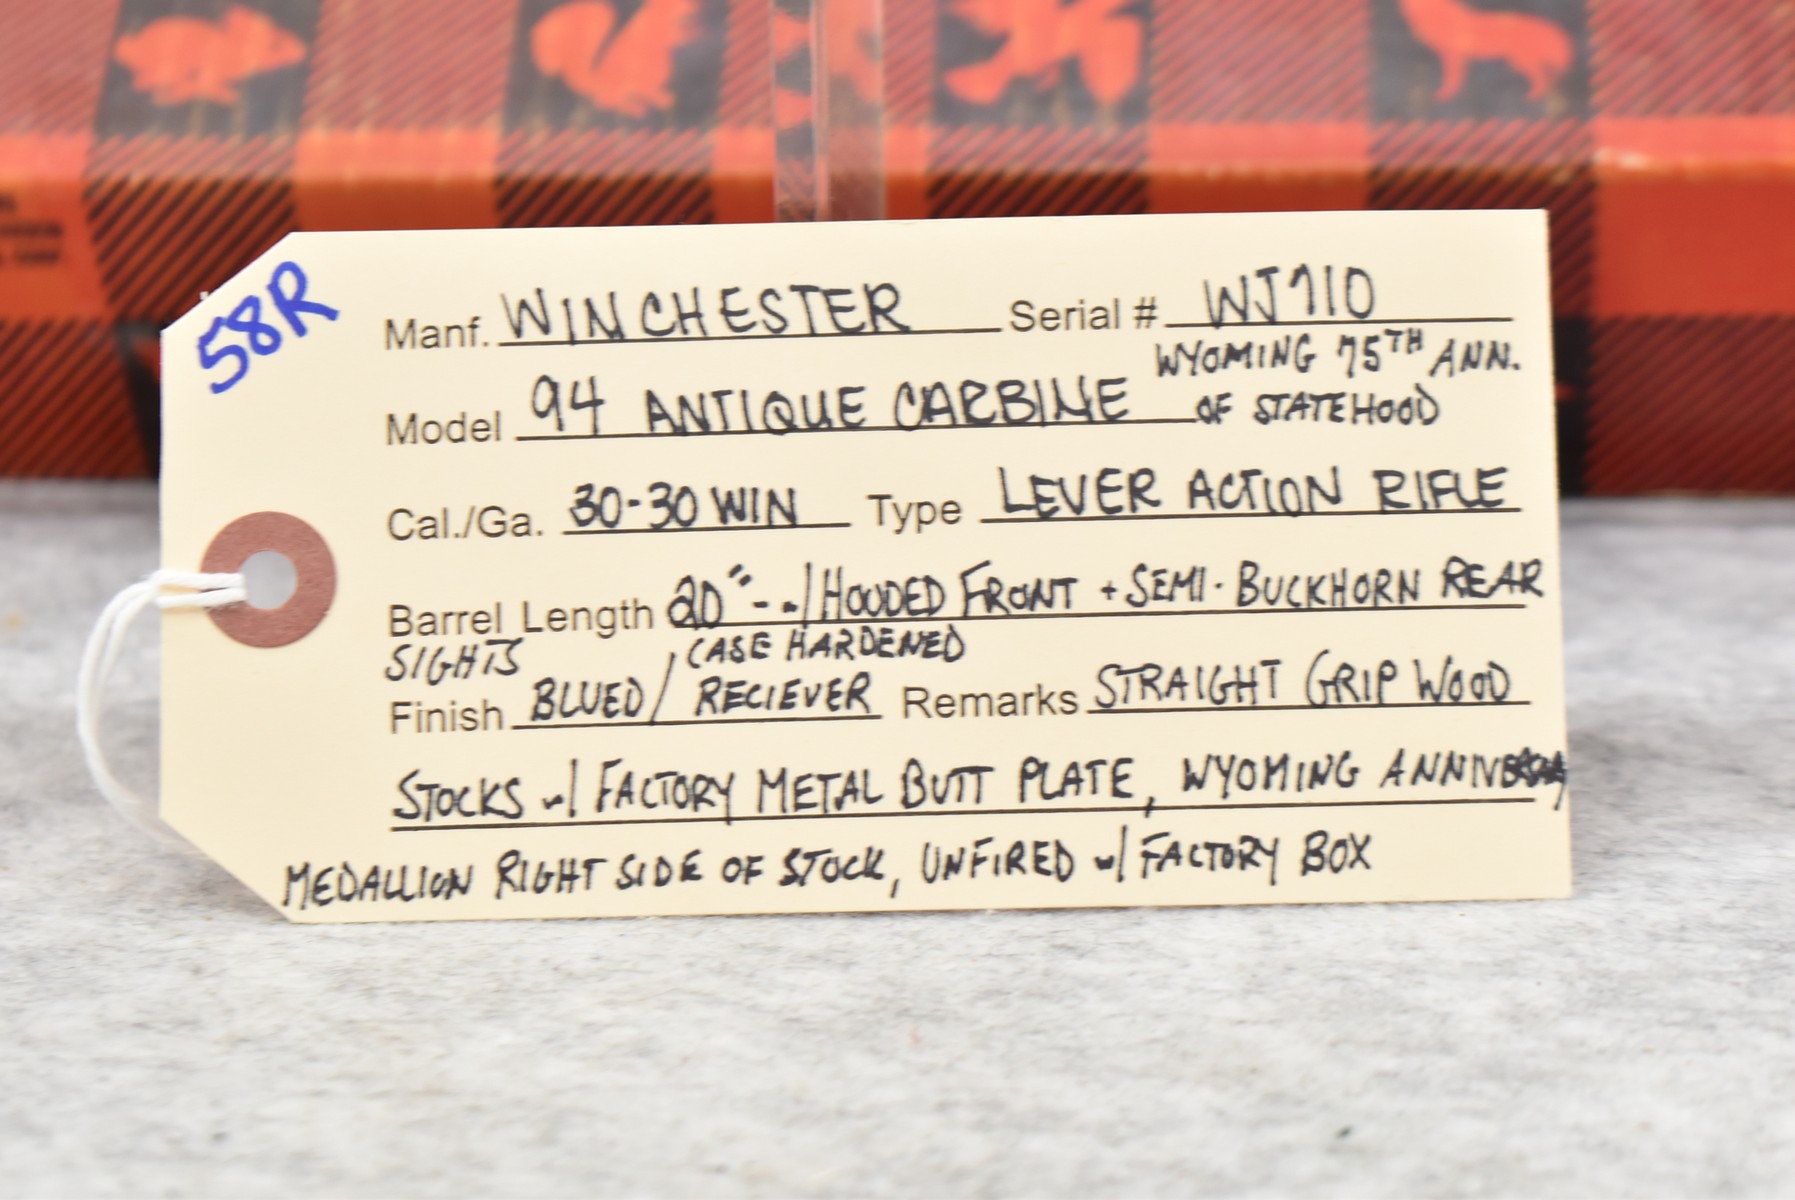 58R
Manf. WINCHESTER Serial # WJ710
WYOMING 75TH ANN.
Model 94 ANTIQUE CARBINE OF STATEHOOD
Cal./Ga. 30-30 WIN Type LEVER ACTION RIFLE
Barrel Length 20" - w/ HOODED FRONT + SEMI-BUCKHORN REAR
SIGHTS CASE HARDENED
Finish BLUED / RECIEVER Remarks STRAIGHT GRIP WOOD
STOCKS w/ FACTORY METAL BUTT PLATE, WYOMING
MEDALLION RIGHT SIDE OF STOCK, UNFIRED w/ FACTORY BOX